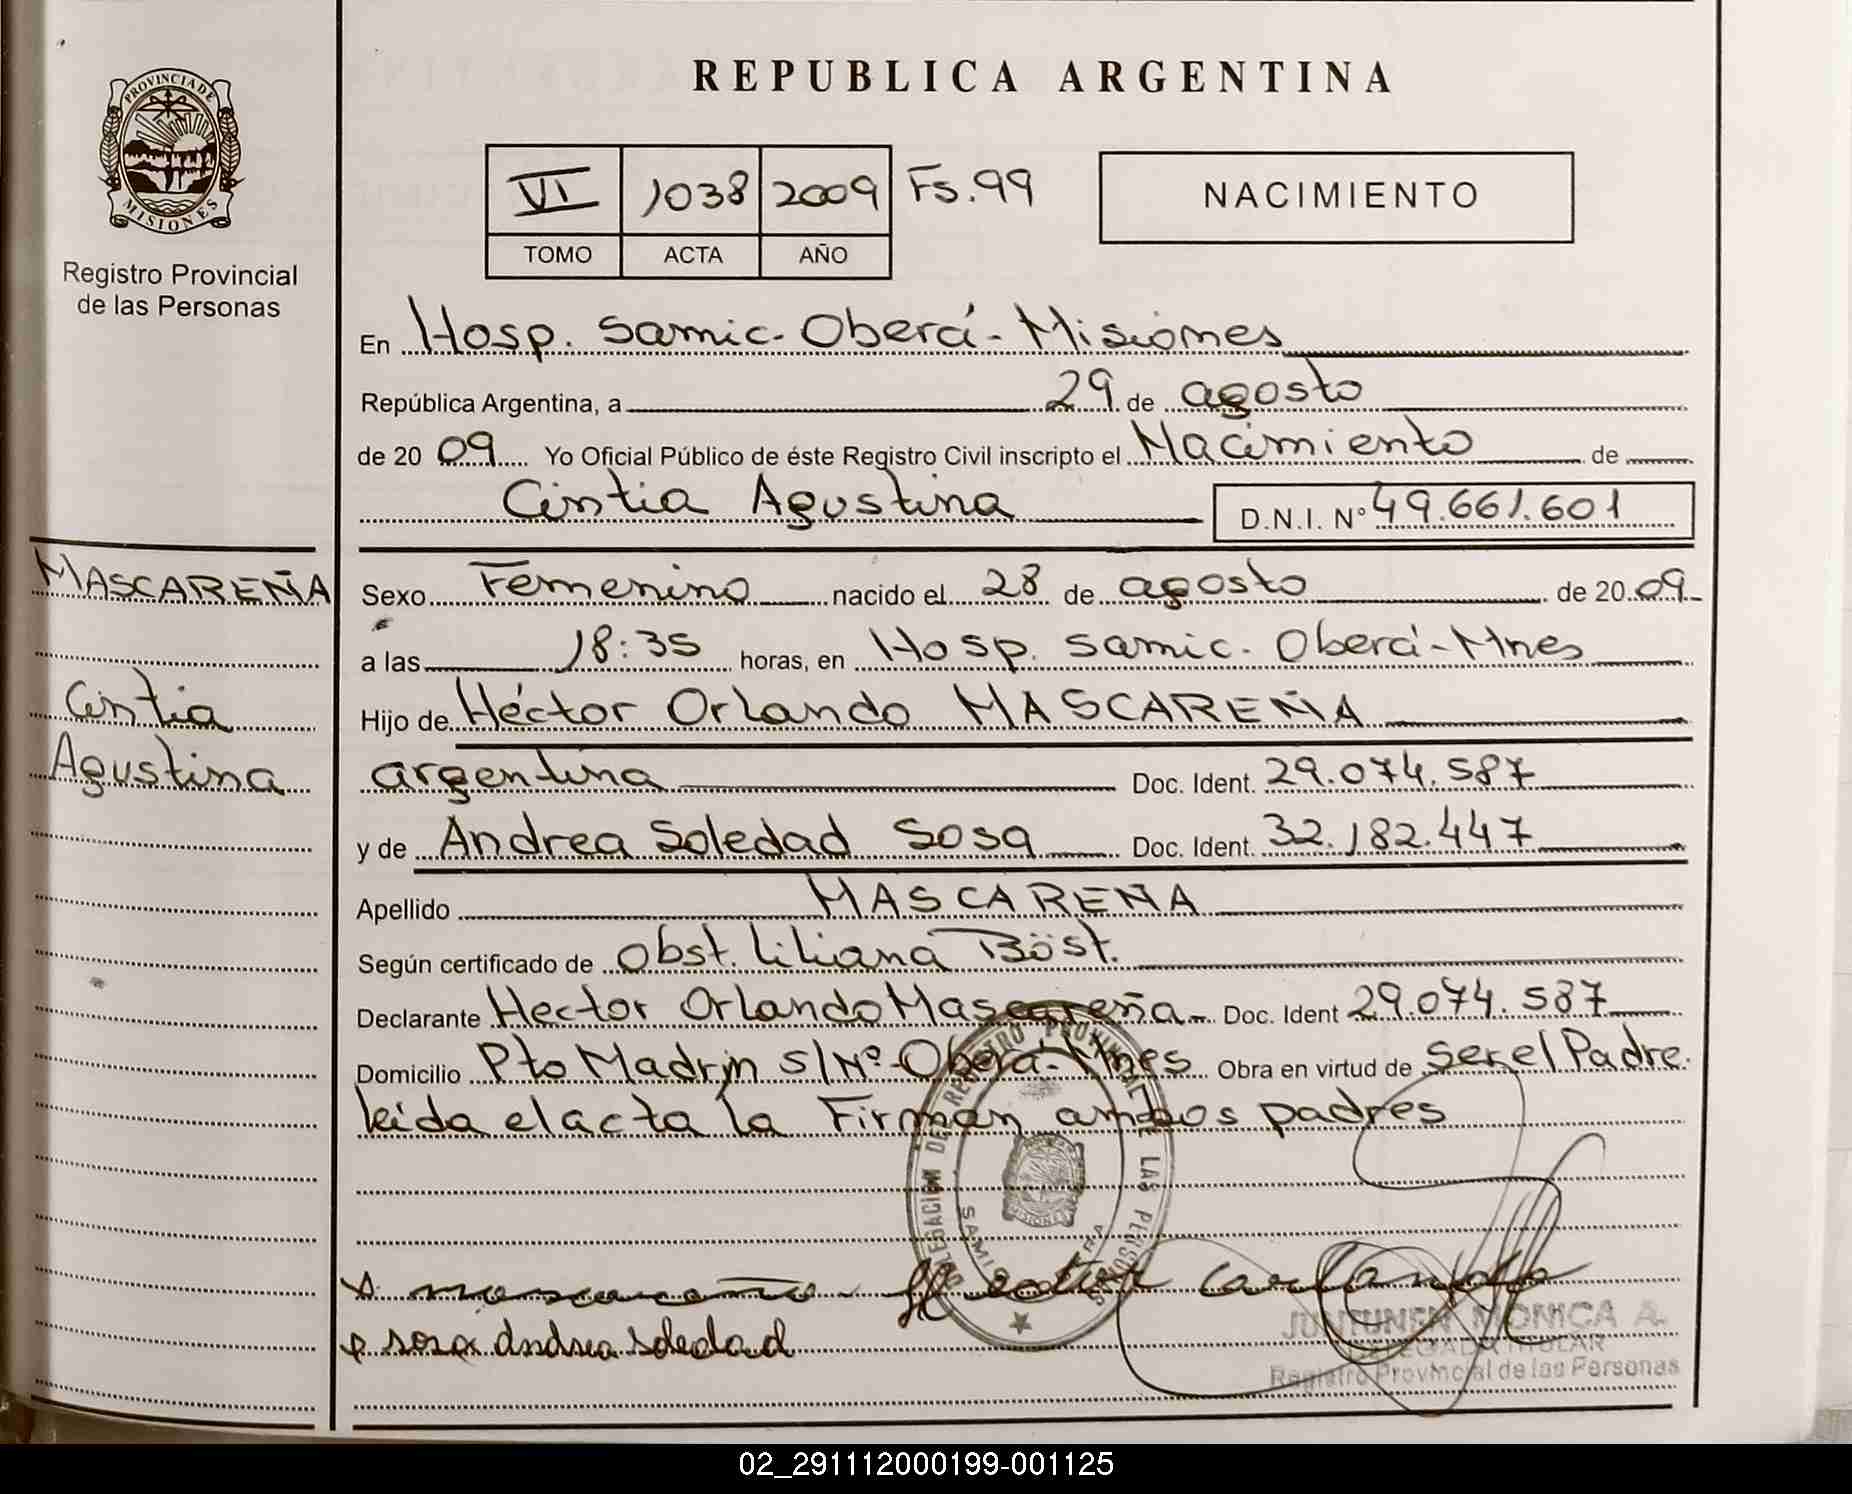 REPUBLICA ARGENTINA
PROVINCIA DE MISIONES
Registro Provincial
de las Personas
VI 1038 2009 Fs.99
TOMO ACTA AÑO
NACIMIENTO
En Hosp. Samic. Oberá - Misiones
República Argentina, a 29 de agosto
de 2009 Yo Oficial Público de éste Registro Civil inscripto el Nacimiento de
Cintia Agustina D.N.I. Nº 49.661.601
MASCAREÑA
Cintia
Agustina
Sexo Femenino nacido el 28 de agosto de 2009
a las 18:35 horas, en Hosp. Samic. Oberá - Mnes
Hijo de Héctor Orlando MASCAREÑA
argentina Doc. Ident. 29.074.587
y de Andrea Soledad Sosa Doc. Ident. 32.182.447
Apellido MASCAREÑA
Según certificado de Obst. Liliana Böst.
Declarante Hector Orlando Mascareña Doc. Ident 29.074.587
Domicilio Pto Madryn S/Nº - Oberá - Mnes Obra en virtud de ser el Padre.
leída el acta la Firman ambos padres
DELEGACION DEL REGISTRO PROVINCIAL DE LAS PERSONAS
MISIONES
mascareño Hector Orlando
Sosa Andrea Soledad
JUNTUNEN MONICA A.
DELEGADA TITULAR
Registro Provincial de las Personas
02_291112000199-001125